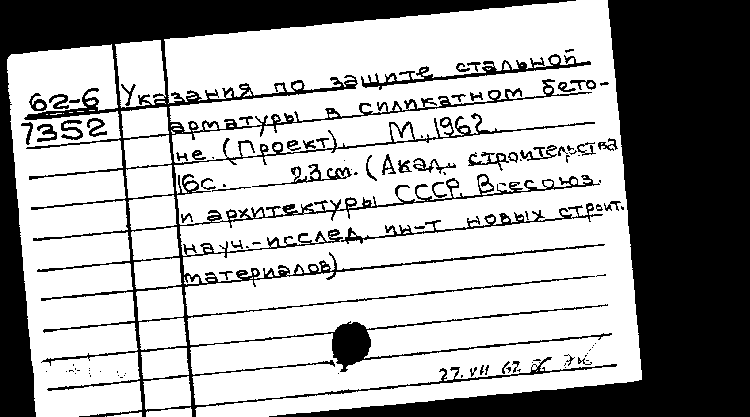 62-6
7352
Указания по защите стальной
арматуры в силикатном бето-
не. (Проект). М., 1962.
16с. 23 см. (Акад. строительства
и архитектуры СССР. Всесоюз.
науч.-исслед. ин-т новых строит.
материалов).
27. VII 62